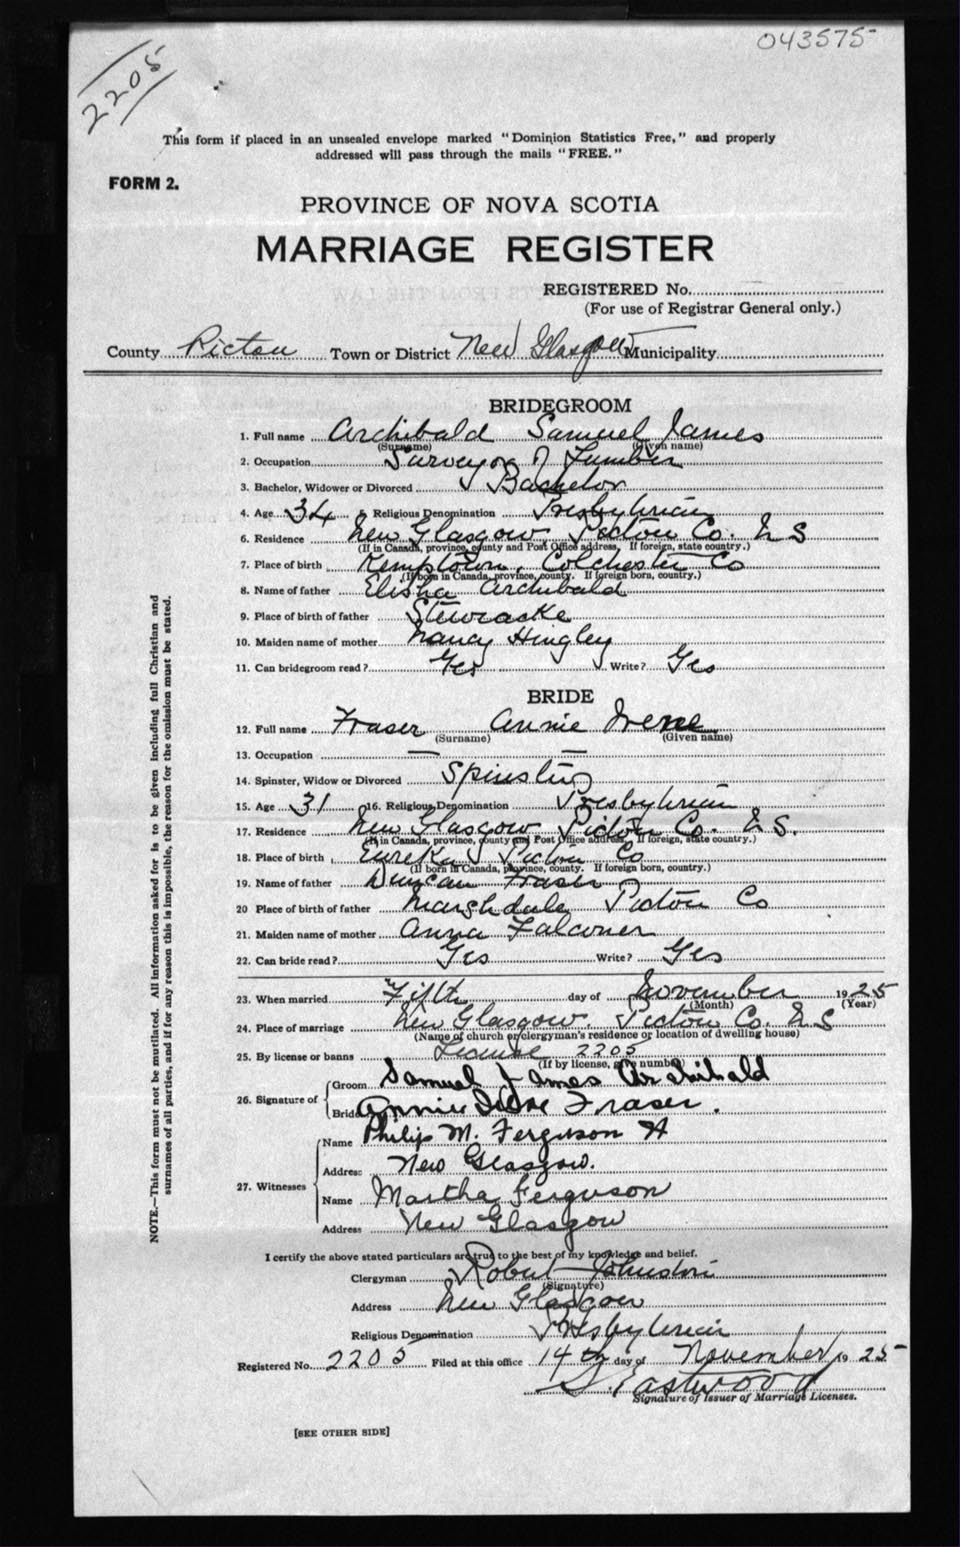 043575
2205
This form if placed in an unsealed envelope marked "Dominion Statistics Free," and properly
addressed will pass through the mails "FREE."
FORM 2.
PROVINCE OF NOVA SCOTIA
MARRIAGE REGISTER
REGISTERED No.
(For use of Registrar General only.)
County Pictou Town or District New Glasgow Municipality
BRIDEGROOM
1. Full name Archibald Samuel James
(Surname) (Given name)
2. Occupation Surveyor of Lumber
3. Bachelor, Widower or Divorced Bachelor
4. Age 34 5. Religious Denomination Presbyterian
6. Residence New Glasgow Pictou Co. N S
(If in Canada, province, county and Post Office address, If foreign, state country.)
7. Place of birth Kemptown, Colchester Co
(If born in Canada, province, county. If foreign born, country.)
8. Name of father Elisha Archibald
9. Place of birth of father Stewiacke
10. Maiden name of mother Nancy Hingley
11. Can bridegroom read? Yes Write? Yes
BRIDE
12. Full name Fraser Annie Irene
(Surname) (Given name)
13. Occupation — —
14. Spinster, Widow or Divorced Spinster
15. Age 31 16. Religious Denomination Presbyterian
17. Residence New Glasgow Pictou Co. N S.
(If in Canada, province, county and Post Office address, If foreign, state country.)
18. Place of birth Eureka Pictou Co
(If born in Canada, province, county. If foreign born, country.)
19. Name of father Duncan Fraser
20 Place of birth of father Marshdale Pictou Co
21. Maiden name of mother Anna Falconer
22. Can bride read? Yes Write? Yes
23. When married Fifth day of November 1925
(Month) (Year)
24. Place of marriage New Glasgow Pictou Co. N S
(Name of church or clergyman's residence or location of dwelling house)
25. By license or banns License 2205
(If by license, give number)
26. Signature of
Groom Samuel James Archibald
Bride Annie Irene Fraser.
27. Witnesses
Name Philip M. Ferguson
Address New Glasgow.
Name Martha Ferguson
Address New Glasgow
I certify the above stated particulars are true to the best of my knowledge and belief.
Clergyman Robert Johnston
(Signature)
Address New Glasgow
Religious Denomination Presbyterian
Registered No. 2205 Filed at this office 14th day of November 1925
S Eastwood
Signature of Issuer of Marriage Licenses.
[SEE OTHER SIDE]
NOTE.—This form must not be mutilated. All information asked for is to be given including full Christian and
surnames of all parties, and if for any reason this is impossible, the reason for the omission must be stated.